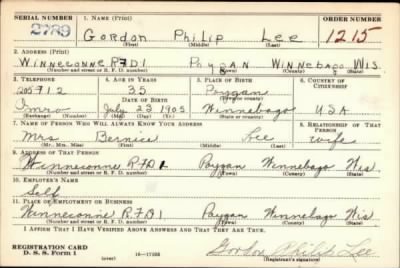 SERIAL NUMBER 1. NAME (Print) ORDER NUMBER
2789 Gordon Philip Lee 1215
(First) (Middle) (Last)
2. ADDRESS (Print)
Winneconne R.F.D.1 Poygan Winnebago Wis
(Number and street or R. F. D. number) (Town) (County) (State)
3. TELEPHONE 4. AGE IN YEARS 5. PLACE OF BIRTH 6. COUNTRY OF CITIZENSHIP
205 F 12 35 Poygan
DATE OF BIRTH (Town or county)
Omro July 23 1905 Winnebago USA
(Exchange) (Number) (Mo.) (Day) (Yr.) (State or country)
7. NAME OF PERSON WHO WILL ALWAYS KNOW YOUR ADDRESS 8. RELATIONSHIP OF THAT PERSON
Mrs Bernice Lee wife
(Mr., Mrs., Miss) (First) (Middle) (Last)
9. ADDRESS OF THAT PERSON
Winneconne R.F.D.1 Poygan Winnebago Wis
(Number and street or R. F. D. number) (Town) (County) (State)
10. EMPLOYER'S NAME
Self
11. PLACE OF EMPLOYMENT OR BUSINESS
Winneconne R.F.D.1 Poygan Winnebago Wis
(Number and street or R. F. D. number) (Town) (County) (State)
I AFFIRM THAT I HAVE VERIFIED ABOVE ANSWERS AND THAT THEY ARE TRUE.
REGISTRATION CARD
D. S. S. Form 1 (over) 16—17105 Gordon Philip Lee
(Registrant's signature)